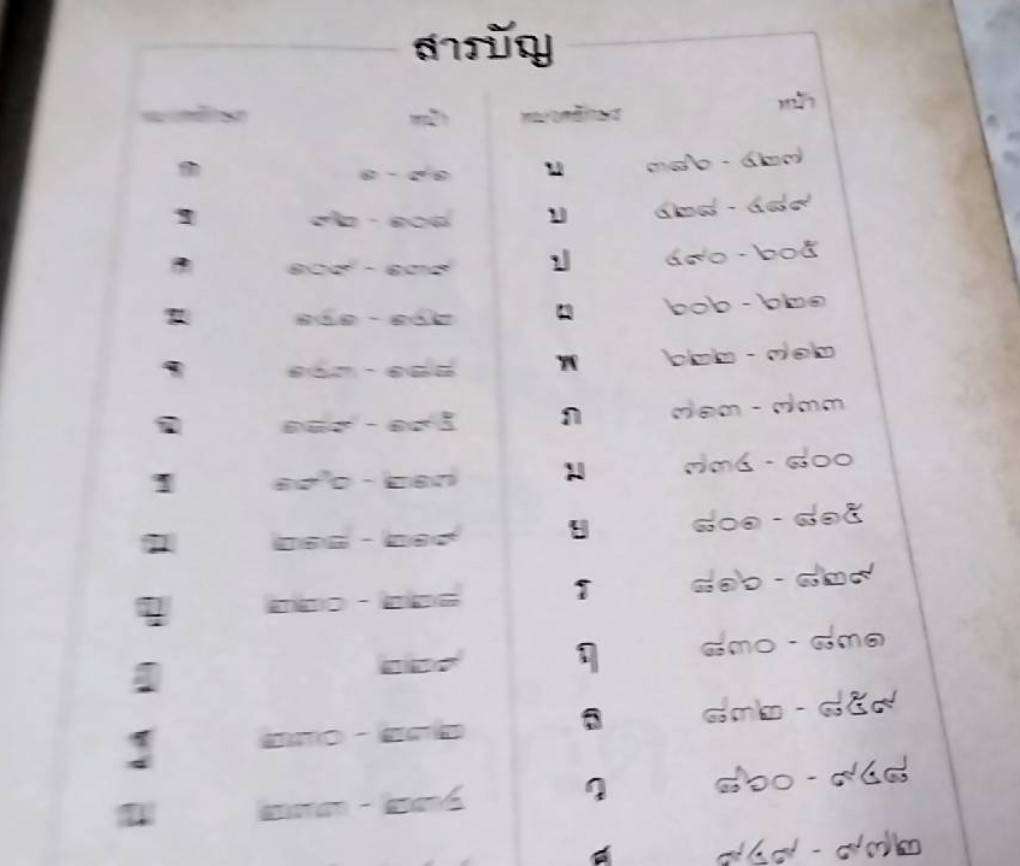 สารบัญ
หมวดอักษร หน้า
ก ๑ - ๙๑
ข ๙๒ - ๑๐๘
ค ๑๐๙ - ๑๓๙
ฆ ๑๔๑ - ๑๔๒
จ ๑๔๓ - ๑๘๘
ฉ ๑๘๙ - ๑๙๕
ช ๑๙๖ - ๒๑๗
ฌ ๒๑๘ - ๒๑๙
ญ ๒๒๐ - ๒๒๘
๒๒๙
ฐ ๒๓๐ - ๒๓๒
๒๓๓ - ๒๓๔
หมวดอักษร หน้า
น ๓๘๖ - ๔๒๗
บ ๔๒๘ - ๔๘๙
ป ๔๙๐ - ๖๐๕
ผ ๖๐๖ - ๖๒๑
พ ๖๒๒ - ๗๑๒
ภ ๗๑๓ - ๗๓๓
ม ๗๓๔ - ๘๐๐
ย ๘๐๑ - ๘๑๕
ร ๘๑๖ - ๘๒๙
ฤ ๘๓๐ - ๘๓๑
ล ๘๓๒ - ๘๕๙
ว ๘๖๐ - ๙๔๘
ศ ๙๔๙ - ๙๗๒